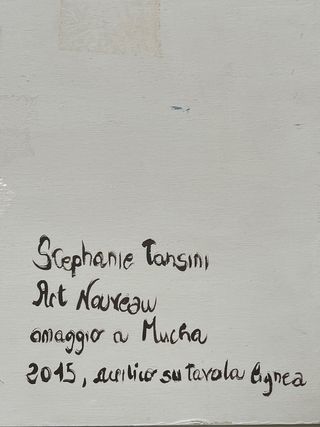 Stephanie Tansini
Art Nouveau
omaggio a Mucha
2015, acrilico su tavola lignea